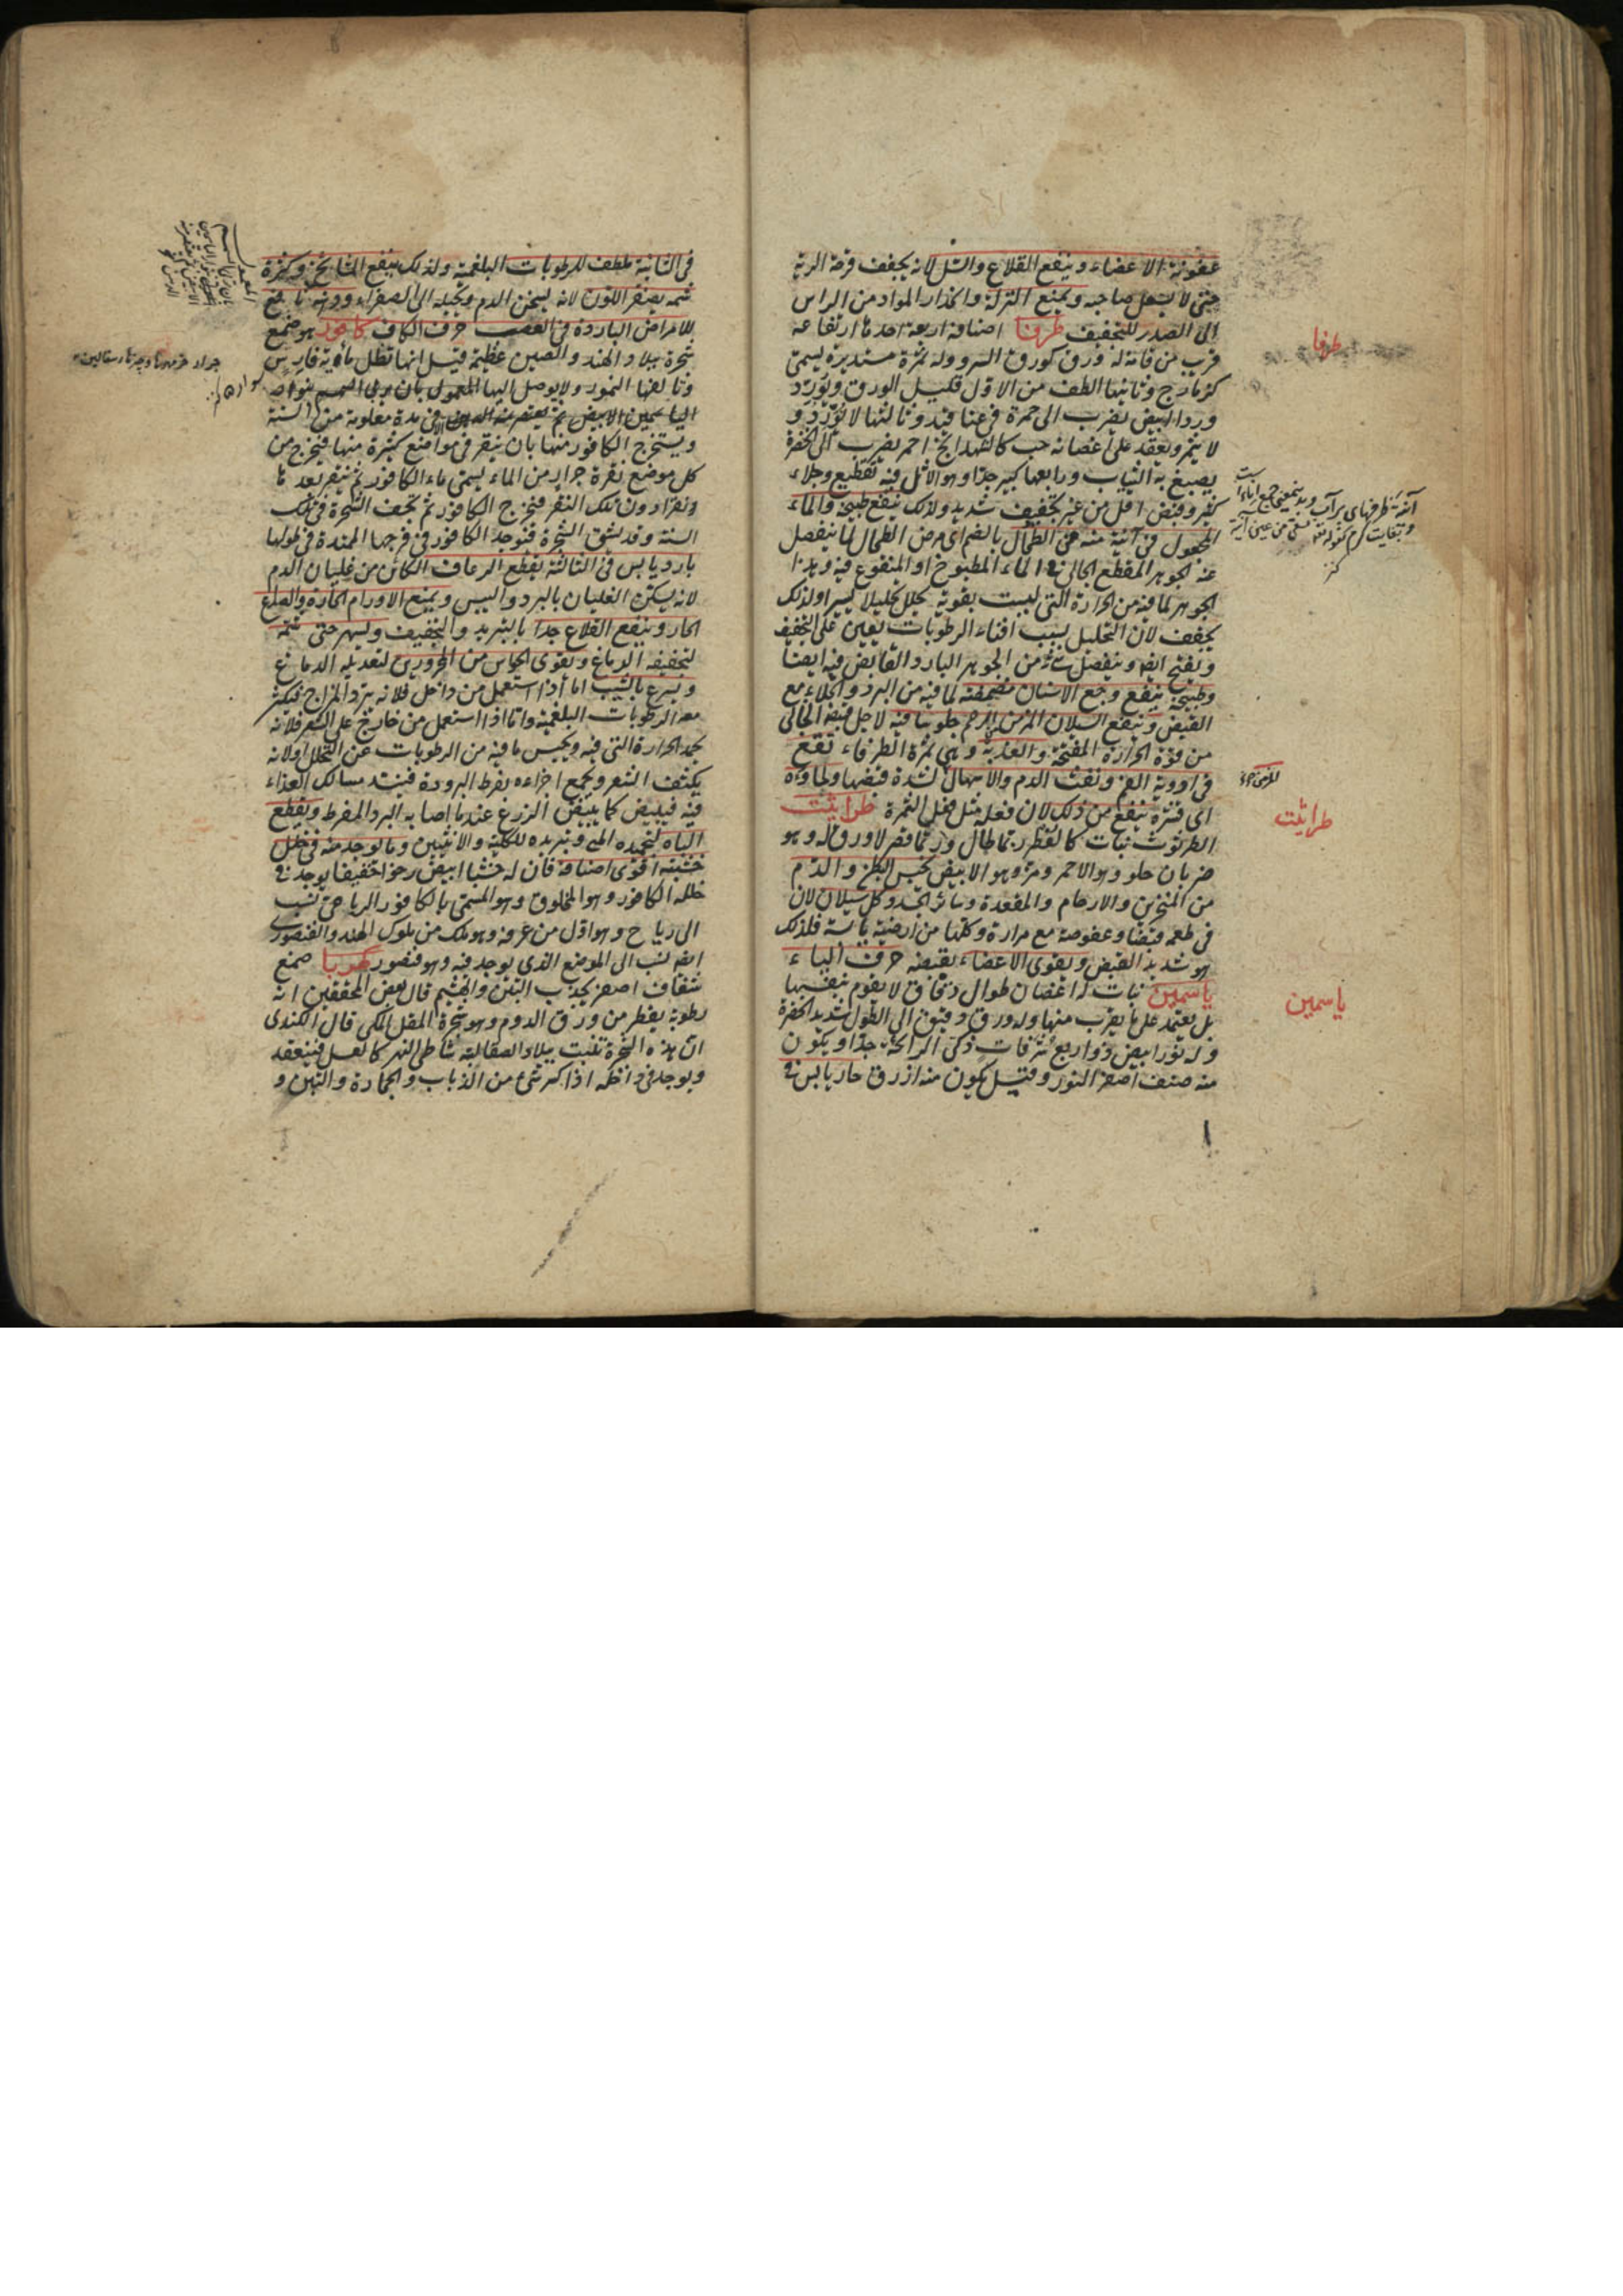 عفونة الاعضاء وينفع القلاع والسل لانه يجفف قرحة الرية
حتى لا يسعل صاحبه ويمنع النزلة وانحدار المواد من الراس
الى الصدر للتجفيف طرفا اصنافه اربعة احدها ارتفاعه
قريب من قامة له ورق كورق السرو وله ثمرة مستديرة يسمى
كزمازج وثانيها الطف من الاول قليل الورق ويورد
وردا ابيض يضرب الى حمرة فرعنا فيه وثالثها لا يورد و
لا يثمر ويعقد على اغصانه حب كالشهدانج احمر يضرب الى الخضرة
يصبغ به الثياب ورابعها كبير جدا وهو الاثل فيه تقطيع وجلاء
كثير وقبض اقل من غير تجفيف شديد ولذلك ينفع طبيخه والماء
المجعول في آنية منه من الطحال بالضم اي مرض الطحال لما ينفصل
عنه الجوهر المقطع الجالي في الماء المطبوخ او المنقوع فيه وهذا
الجوهر لما فيه من الحرارة التي ليست بقوية يحلل تحليلا يسيرا ولذلك
يجفف لان التحليل بسبب افناء الرطوبات يعين على التجفيف
ويفتح ايضا وينفصل شئ من الجوهر البارد القابض فيه ايضا
وطبيخه ينفع وجع الاسنان مضمضة لما فيه من البرد والجلاء مع
القبض وينفع السيلان المزمن للرحم جلوسا فيه لاجل قبضه الخالي
من قوة الحرارة المفتحة والعذبة وهي ثمرة الطرفاء تقع
في ادوية الفم ونفث الدم والاسهال لشدة قبضها ولحاؤه
اي قشره ينفع من ذلك لان فعله مثل فعل الثمرة طراثيث
الطرثوث نبات كالفطر ربما طال وربما قصر لا ورق له وهو
ضربان حلو وهو الاحمر ومر وهو الابيض يحبس البطن والدم
من المنخرين والارحام والمقعدة وسائر الجسد وكل سيلان لان
في طعمه قبضا وعفوصة مع مرارة وكلها من ارضية يابسة فلذلك
هو شديد القبض ويقوى الاعضاء بقبضه حرف الياء
ياسمين نبات له اغصان طوال دقاق لا يقوم بنفسها
بل يعتمد على ما يقرب منها وله ورق دقيق الى الطول شديد الخضرة
وله نور ابيض ذو اربع شرفات ذكى الرائحة جدا ويكون
منه صنف اصفر النور وقيل يكون منه ازرق حار يابس في
طرفا
طراثيث
ياسمين
في الثانية ملطف للرطوبات البلغمية ولذلك ينفع المشايخ وكثرة
شمه يصفر اللون لانه يسخن الدم ويحيله الى الصفراء ودهنه نافع
للامراض الباردة في العصب حرف الكاف كافور هو صمغ
شجرة ببلاد الهند والصين عظيمة قيل انها تظل مأوية فارس
وتالفها النمور ولا يوصل اليها
الياسمين الابيض ثم يعتصر منه الدهن في مدة معلومة من السنة
ويستخرج الكافور منها بان ينقر في مواضع كثيرة منها فيخرج من
كل موضع نقرة جرار من الماء يسمى ماء الكافور ثم ينقر بعد ما
ونقرا دون تلك النقر فيخرج الكافور ثم تجف الشجرة في تلك
السنة وقد يشق الشجرة فيوجد الكافور في فرجها الممتدة في طولها
بارد يابس في الثالثة يقطع الرعاف الكائن من غليان الدم
لانه يسكن الغليان بالبرد واليبس ويمنع الاورام الحارة والصداع
الحار وينفع القلاع جدا بالتبريد والتجفيف ويسهر حتى شمه
لتجفيفه الدماغ ويقوى الحواس من المحرورين لتعديله الدماغ
ويسرع بالشيب اما اذا استعمل من داخل فلانه يبرد المزاج فيكثر
معه الرطوبات البلغمية واما اذا استعمل من خارج على الشعر فلانه
يجمد الحرارة التي فيه ويحبس ما فيه من الرطوبات عن التحلل او لانه
يكثف الشعر ويجمع اجزاءه بفرط البرودة فينسد مسالك الغذاء
فيه فيبيض كما يبيض الزرع عند ما اصابه البرد المفرط ويقطع
الباه لتجميده المنى وتبريده للكلية والانثيين وما يوجد منه في خلل
خشبه اقوى اصنافه فان له خشبا ابيض رخوا خفيفا يوجد في
خلله الكافور وهو المخلوق وهو المسمى بالكافور الرياحي نسب
الى رياح وهو اول من عرفه وهو ملك من ملوك الهند والفنصورى
ايضا نسب الى الموضع الذي يوجد فيه وهو فنصور كهربا صمغ
شفاف اصفر يجذب التبن والهشيم قال بعض المحققين انه
رطوبة يقطر من ورق الدوم وهو شجرة المقل المكى قال الكندى
ان هذه الشجرة تنبت ببلاد الصقالبة شاطى النهر كالعسل فينعقد
ويوجد في داخله اذا كسر شئ من الذباب والحجارة والتبن و